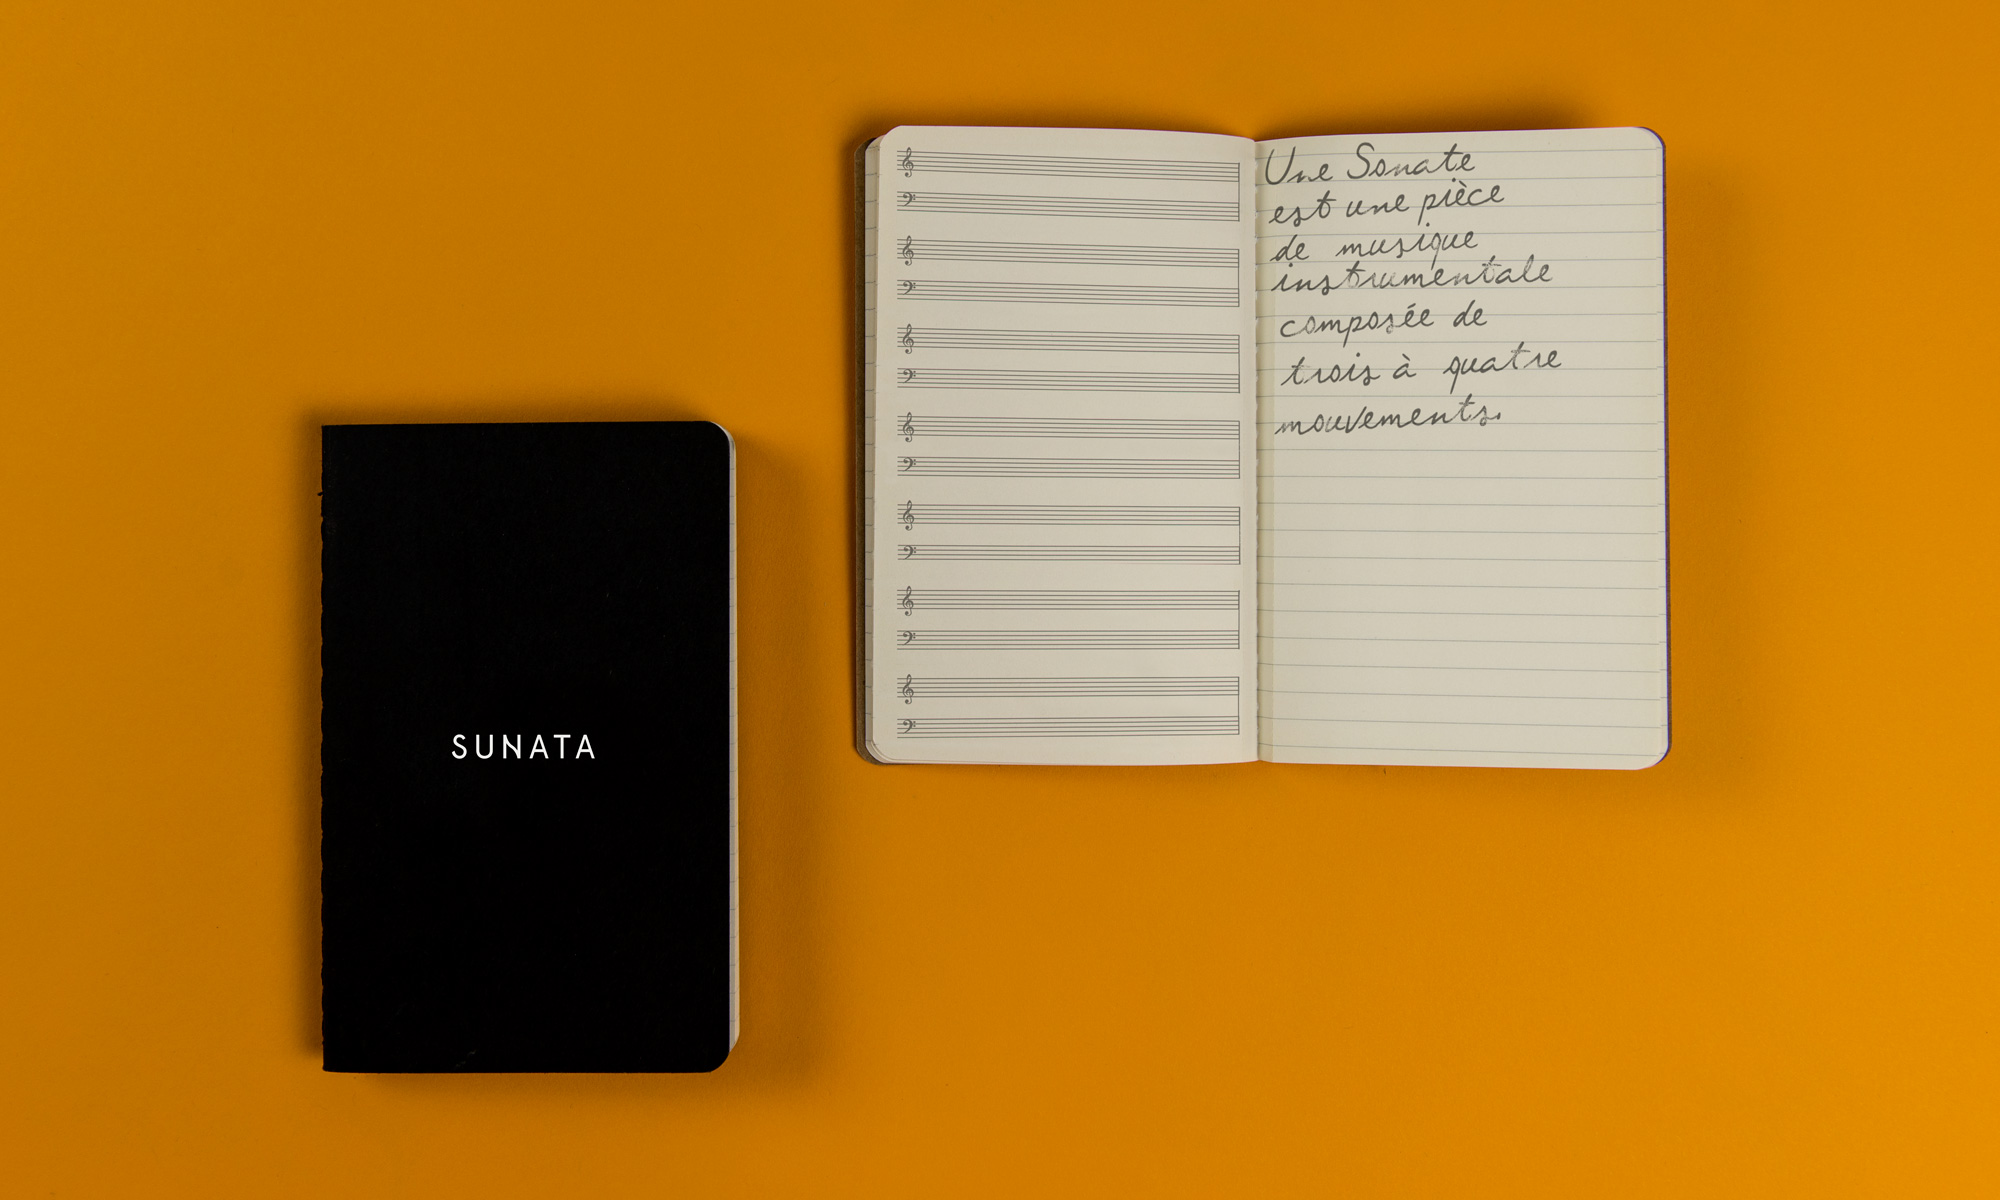 SUNATA
Une Sonate
est une pièce
de musique
instrumentale
composée de
trois à quatre
mouvements.